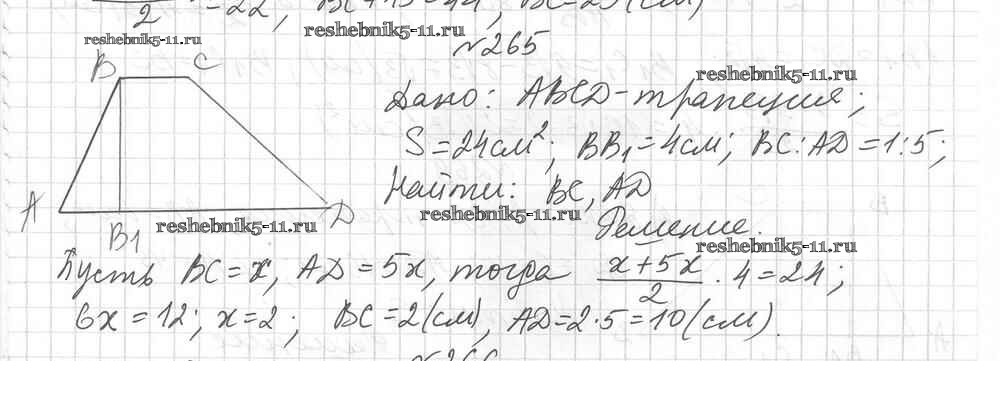 2 = 22, BC + 19 = 44, BC = 25 (см)
reshebnik5-11.ru
reshebnik5-11.ru
№265
B C
reshebnik5-11.ru
Дано: ABCD - трапеция;
S = 24 см²; BB₁ = 4 см; BC : AD = 1 : 5;
Найти: BC, AD
A D
reshebnik5-11.ru
reshebnik5-11.ru
B₁
Решение.
reshebnik5-11.ru
Пусть BC = x, AD = 5x, тогда (x + 5x)/2 · 4 = 24;
6x = 12; x = 2; BC = 2 (см), AD = 2 · 5 = 10 (см).
№266